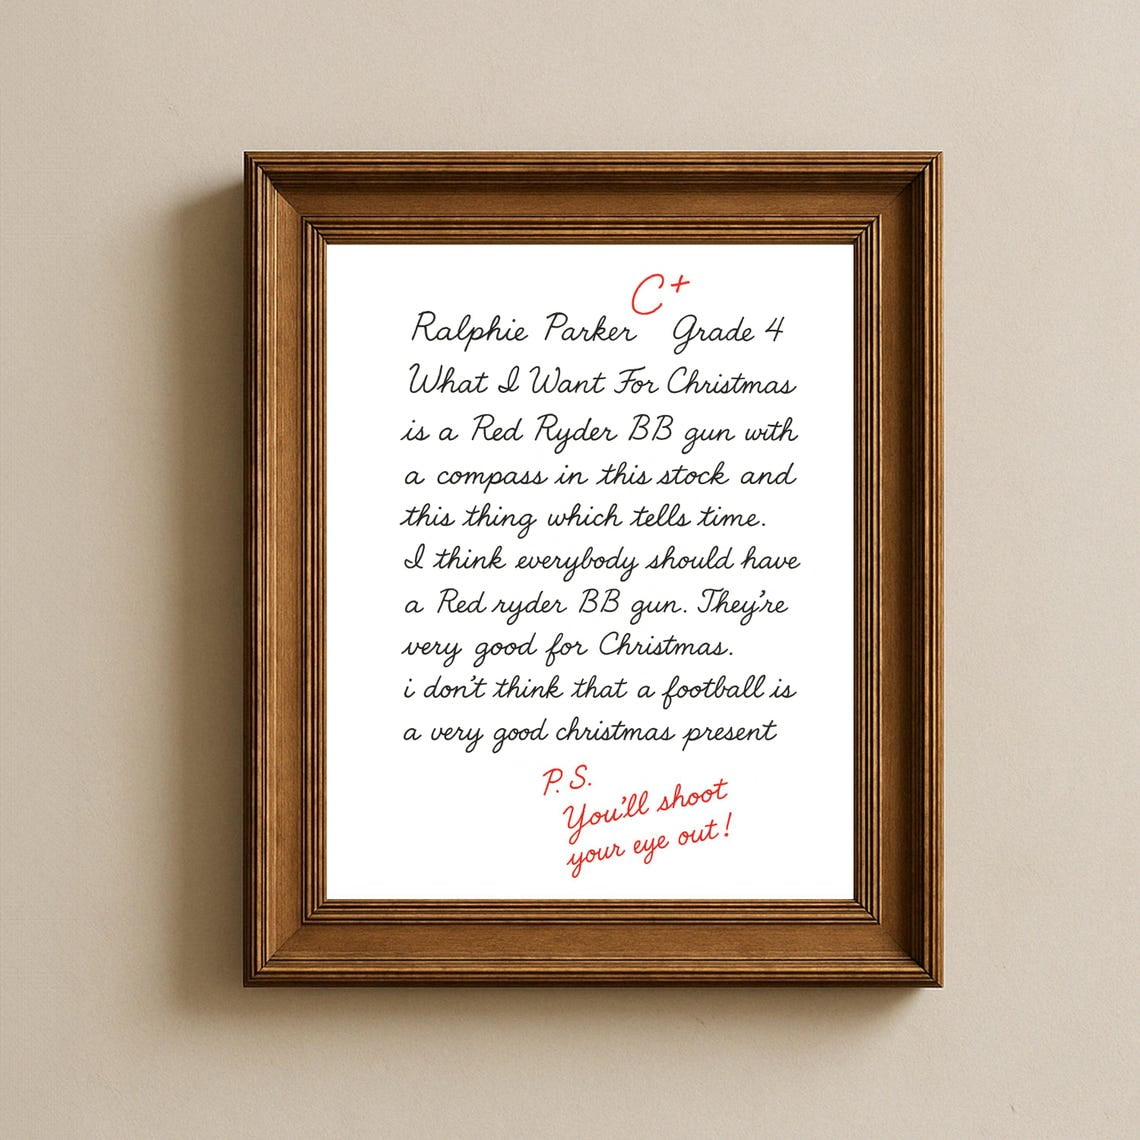 C+
Ralphie Parker Grade 4
What I Want For Christmas
is a Red Ryder BB gun with
a compass in this stock and
this thing which tells time.
I think everybody should have
a Red ryder BB gun. They're
very good for Christmas.
i don't think that a football is
a very good christmas present
P.S.
You'll shoot
your eye out!